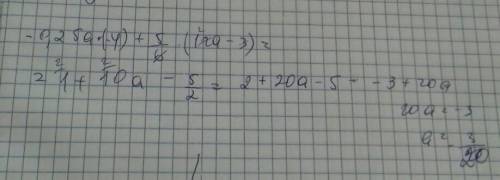 -0,25a·(-4) + 5/6 (12a - 3) =
= ²1 + ²10a - 5/2 = 2 + 20a - 5 = -3 + 20a
20a = -3
a = 3/20